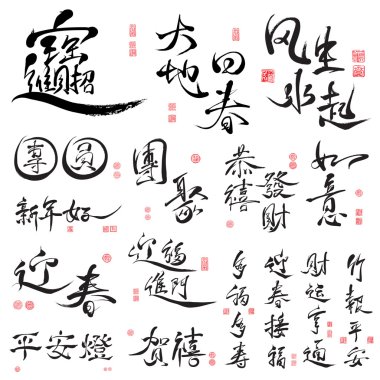 招財進寶
大地回春
风生水起
團圓
團聚
恭禧
發財
如意
新年
迎春
迎福
進門
多福多壽
迎春接福
財運亨通
竹報平安
平安燈
賀禧